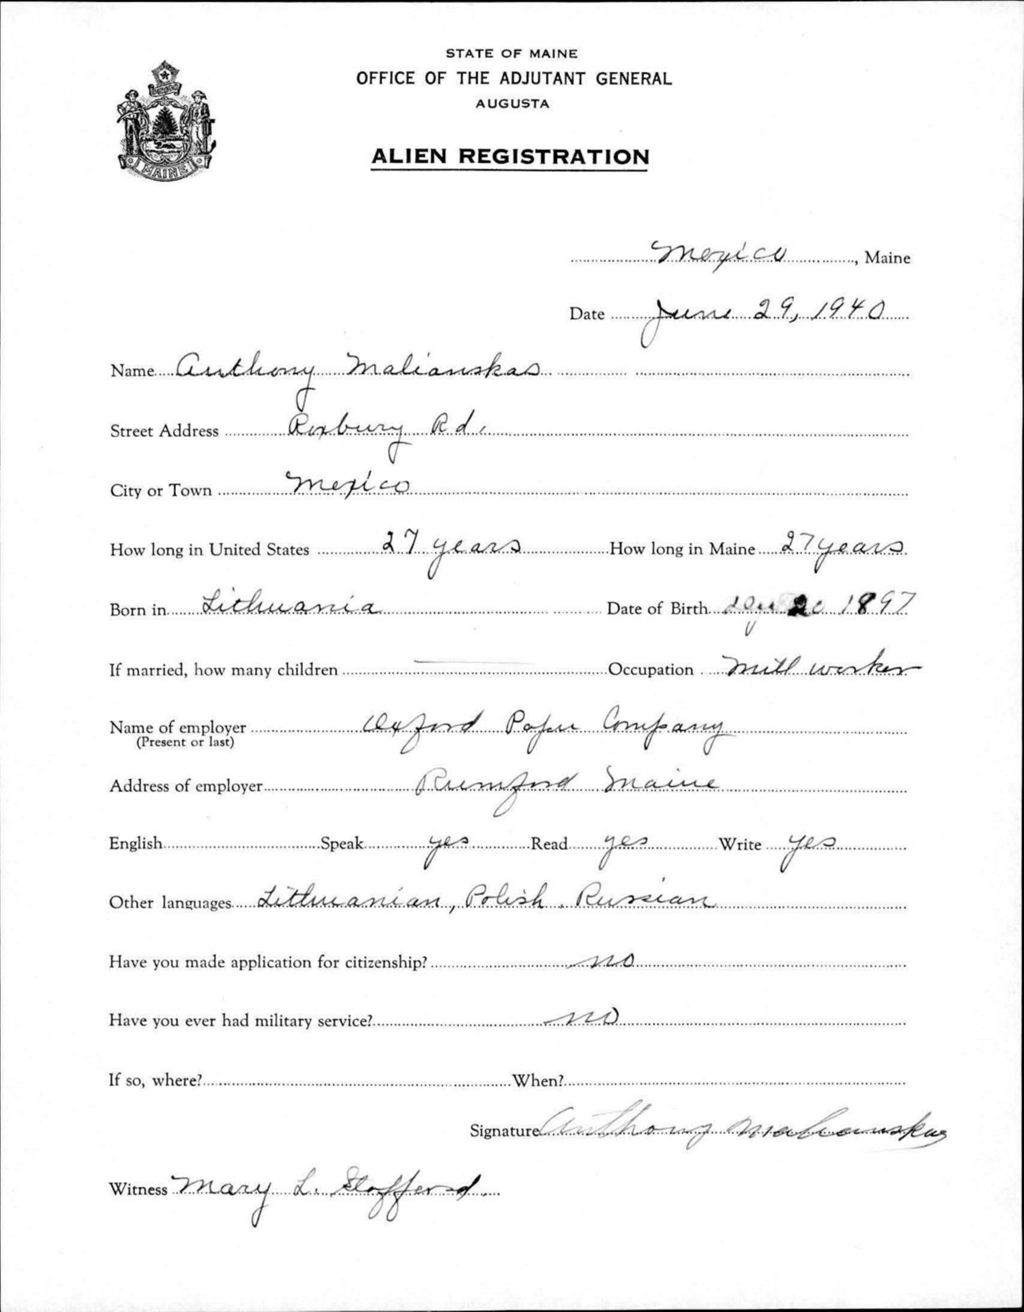 STATE OF MAINE
OFFICE OF THE ADJUTANT GENERAL
AUGUSTA
ALIEN REGISTRATION
MAINE
Mexico, Maine
Date June 29, 1940
Name Anthony Malianskas
Street Address Roxbury Rd.
City or Town Mexico
How long in United States 27 years How long in Maine 27 years
Born in Lithuania Date of Birth 1897
If married, how many children — Occupation Mill worker
Name of employer Oxford Paper Company
(Present or last)
Address of employer Rumford Maine
English Speak yes Read yes Write yes
Other languages Lithuanian, Polish, Russian
Have you made application for citizenship? no
Have you ever had military service? no
If so, where? When?
Signature Anthony Malianskas
Witness Mary L.